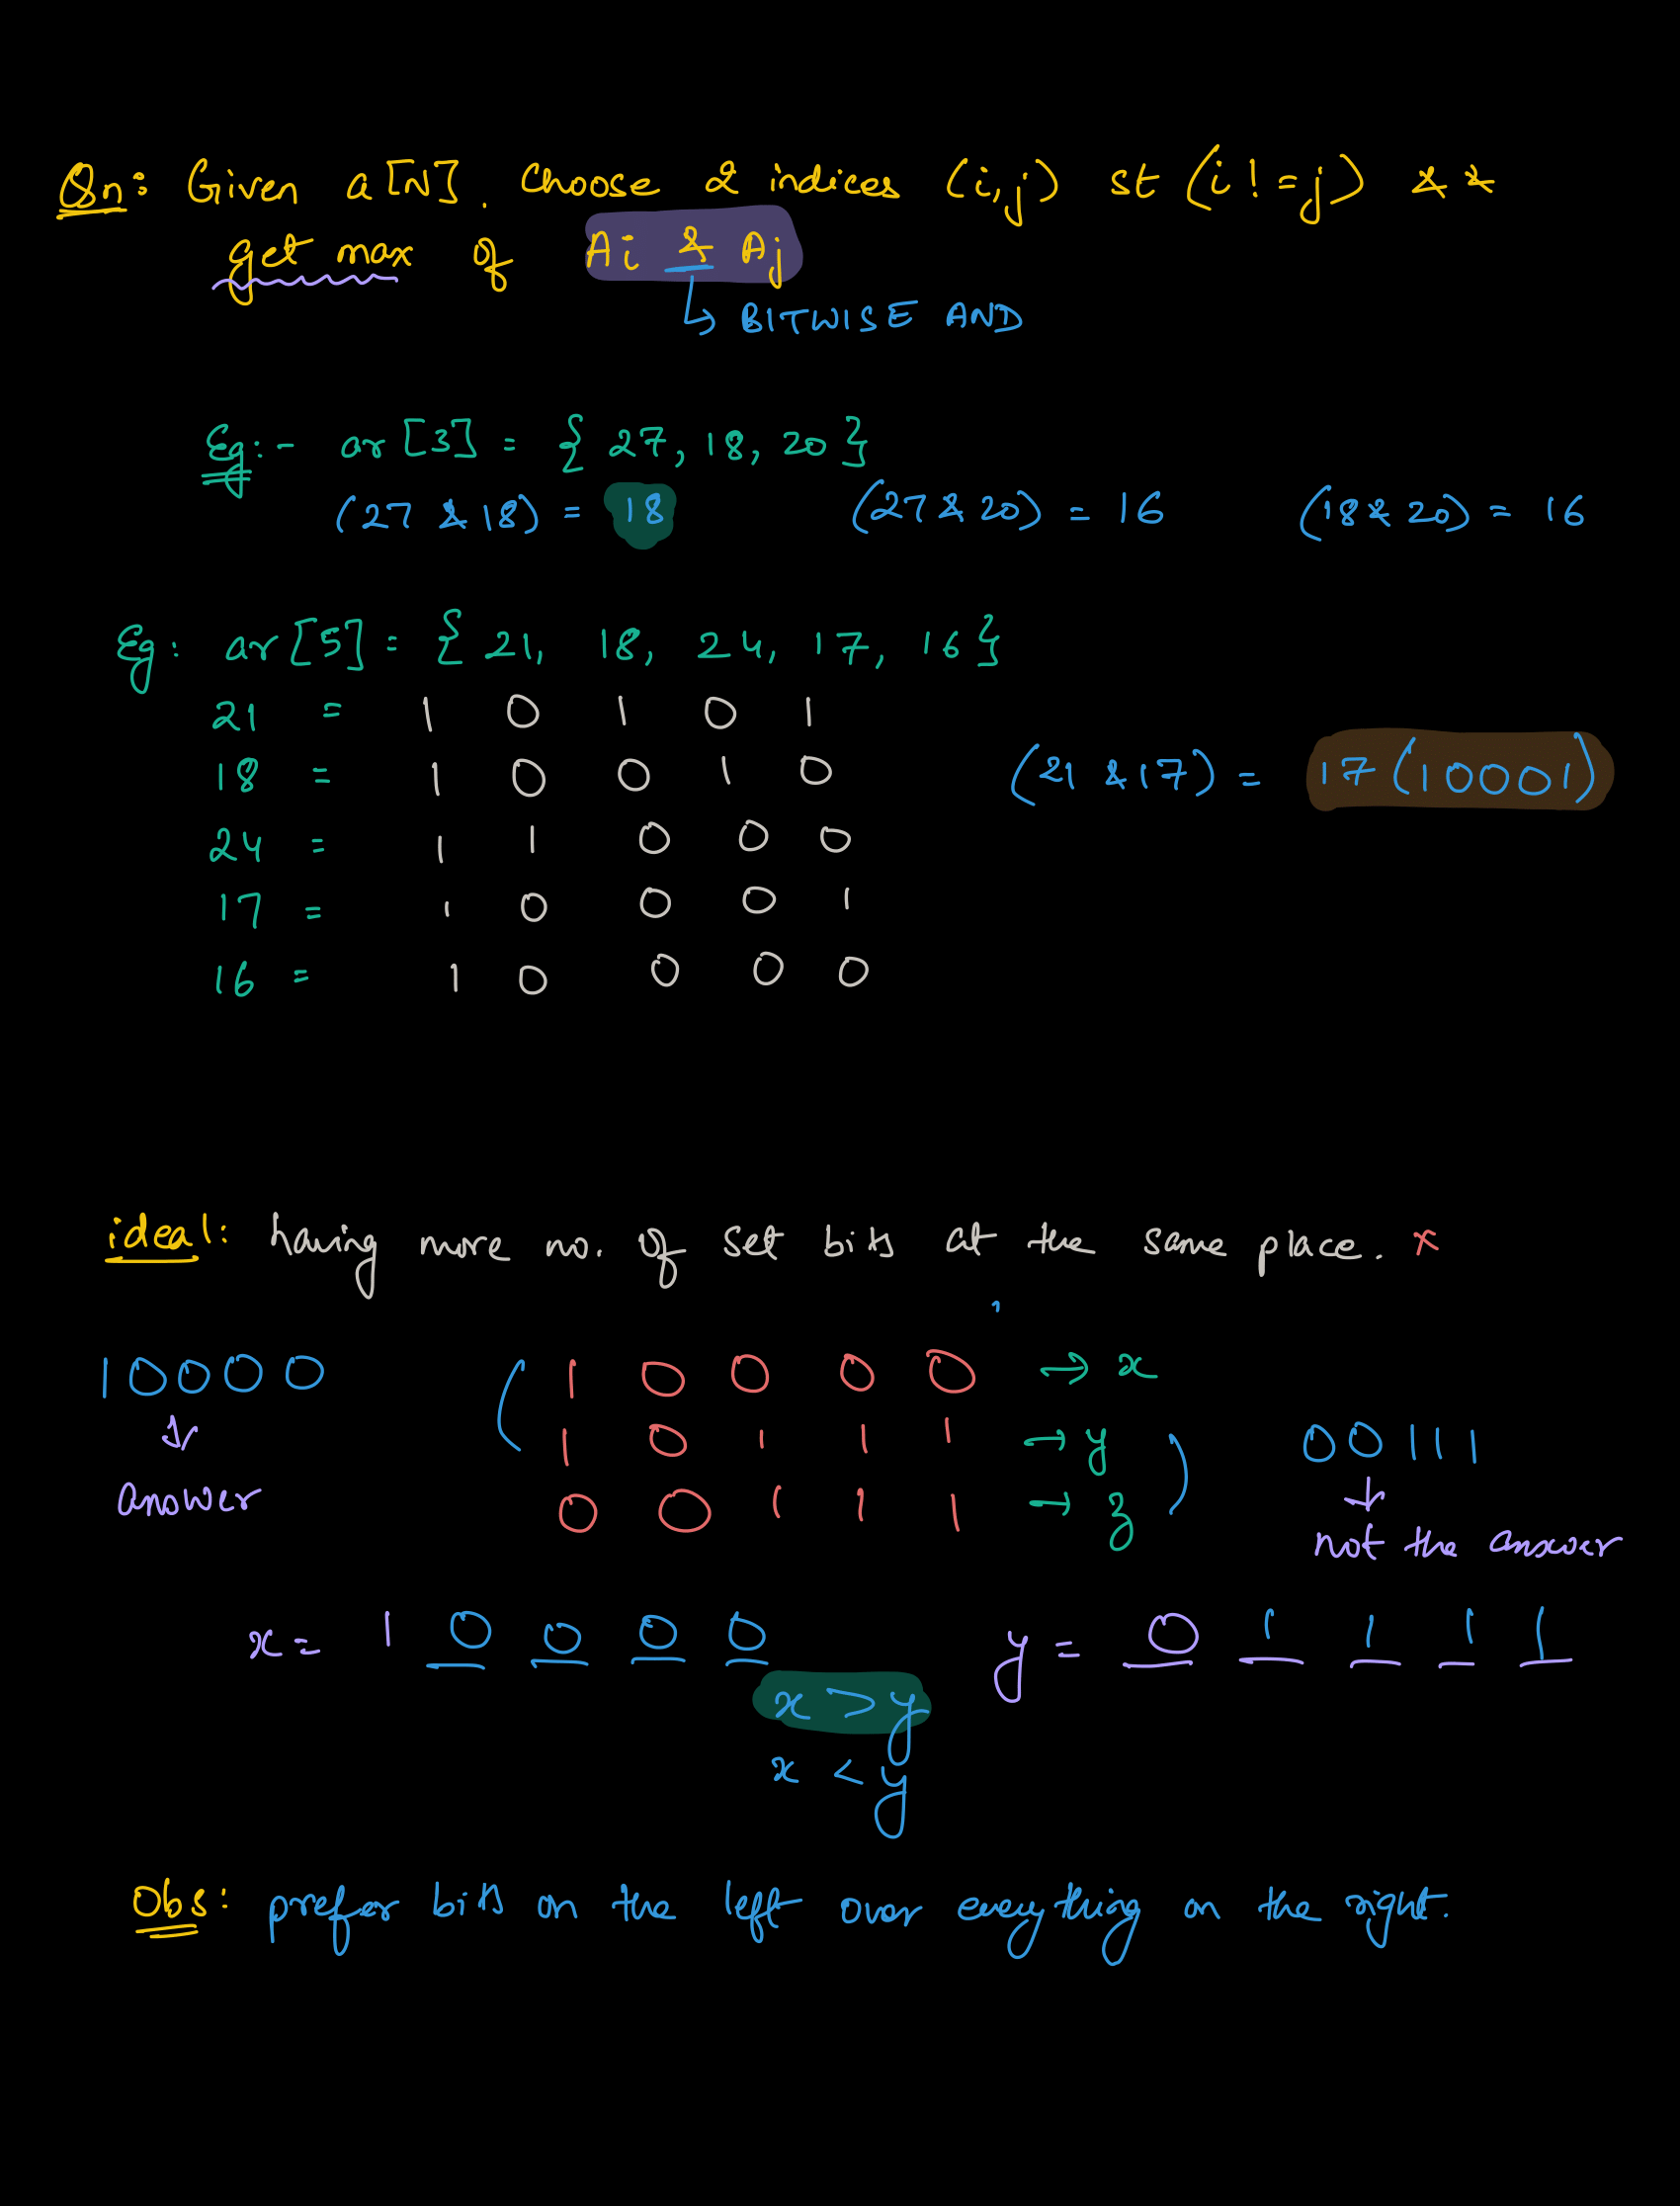 Qn: Given a[N]. Choose 2 indices (i,j) st (i != j) &&
get max of Ai & Aj
↳ BITWISE AND
Eg:- ar[3] = { 27, 18, 20 }
(27 & 18) = 18 (27 & 20) = 16 (18 & 20) = 16
Eg: ar[5] = { 21, 18, 24, 17, 16 }
21 = 1 0 1 0 1
18 = 1 0 0 1 0 (21 & 17) = 17 (10001)
24 = 1 1 0 0 0
17 = 1 0 0 0 1
16 = 1 0 0 0 0
ideal: having more no. of set bits at the same place. x
10000 1 0 0 0 0 → x
1 0 1 1 1 → y 00111
answer 0 0 1 1 1 → z
not the answer
x = 1 0 0 0 0 y = 0 1 1 1 1
x > y
x < y
Obs: prefer bits on the left over everything on the right.